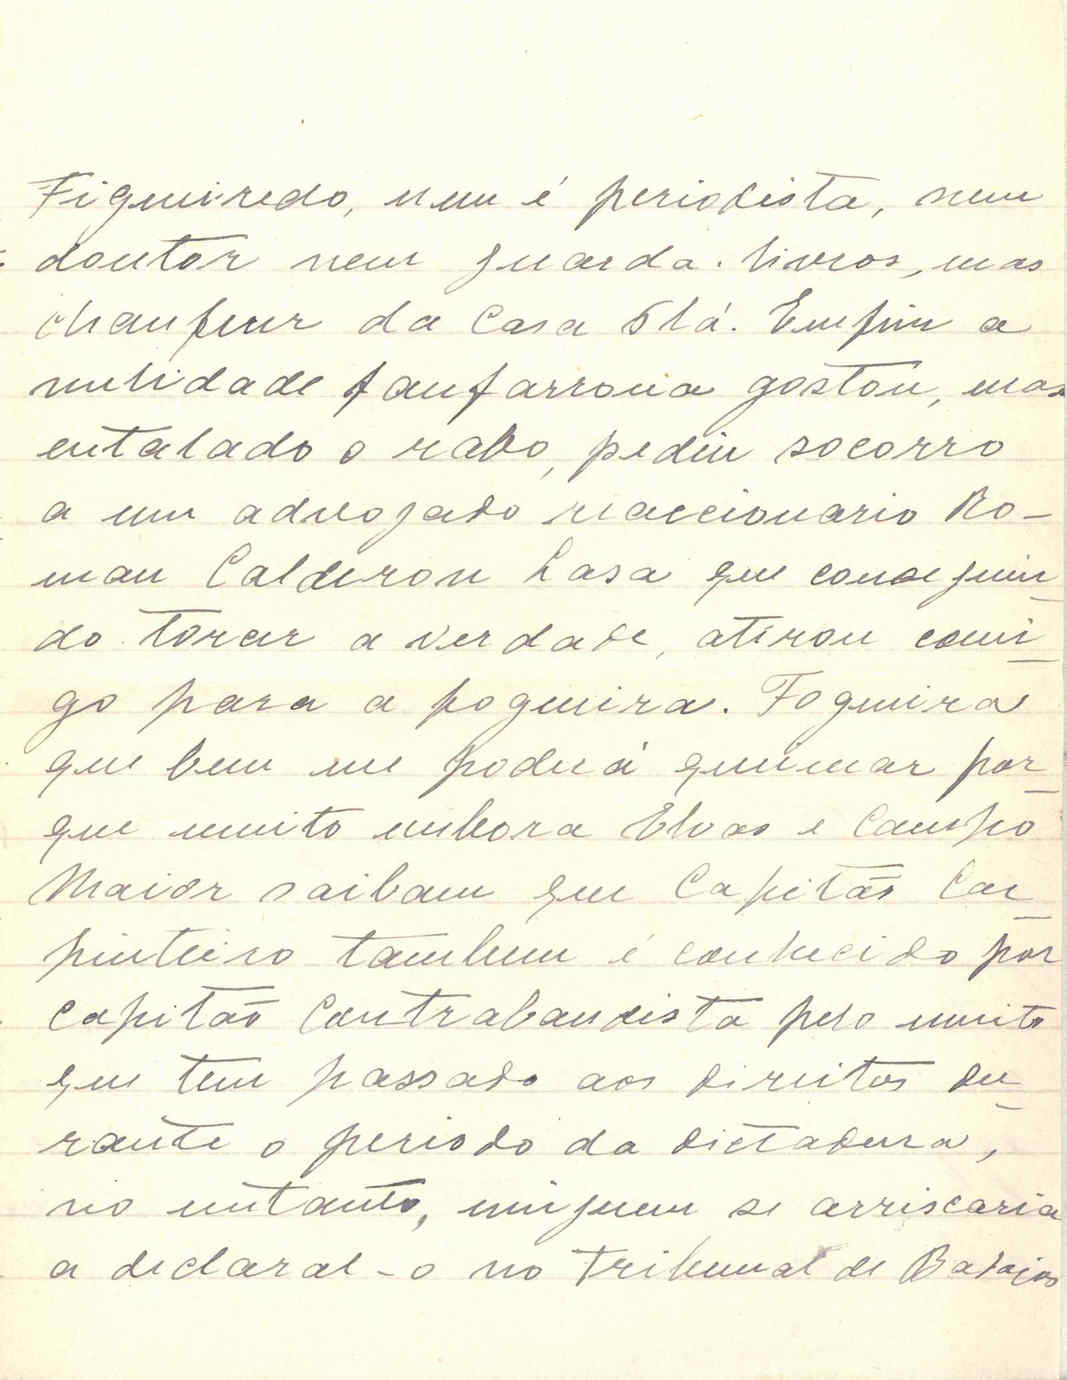 Figueiredo, nem é periodista, nem
doutor nem guarda-livros, mas
chaufeur da Casa Stá. Emfim a
nulidade fanfarrona gostou, mas
entalado o rabo, pediu socorro
a um advogado reaccionario Ro-
man Calderon Lasa que conseguin-
do torcer a verdade, atirou comi-
go para a fogueira. Fogueira
que bem me poderá queimar por-
que muito embora Elvas e Campo
Maior saibam que Capitão Car-
pinteiro tambem é conhecido por
capitão Contrabandista pelo muito
que tem passado aos direitos du-
rante o periodo da dictadura,
no entanto, ninguem se arriscaria
a declaral-o no Tribunal de Badajos